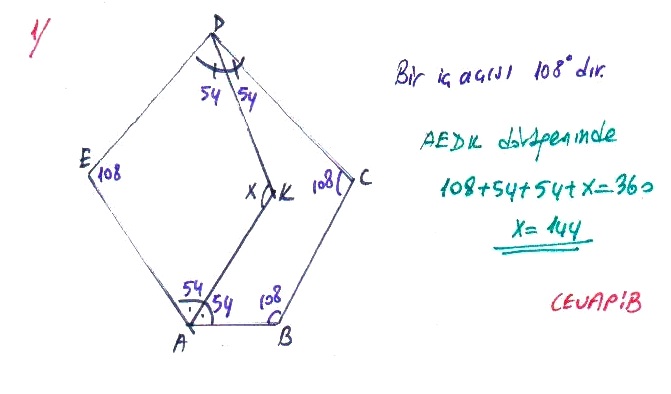 1/
D
54 54
Bir iç açısı 108° dır.
AEDK dörtgeninde
E
108
X K
108
C
108+54+54+X=360
X=144
54
54
108
A
B
CEVAP:B